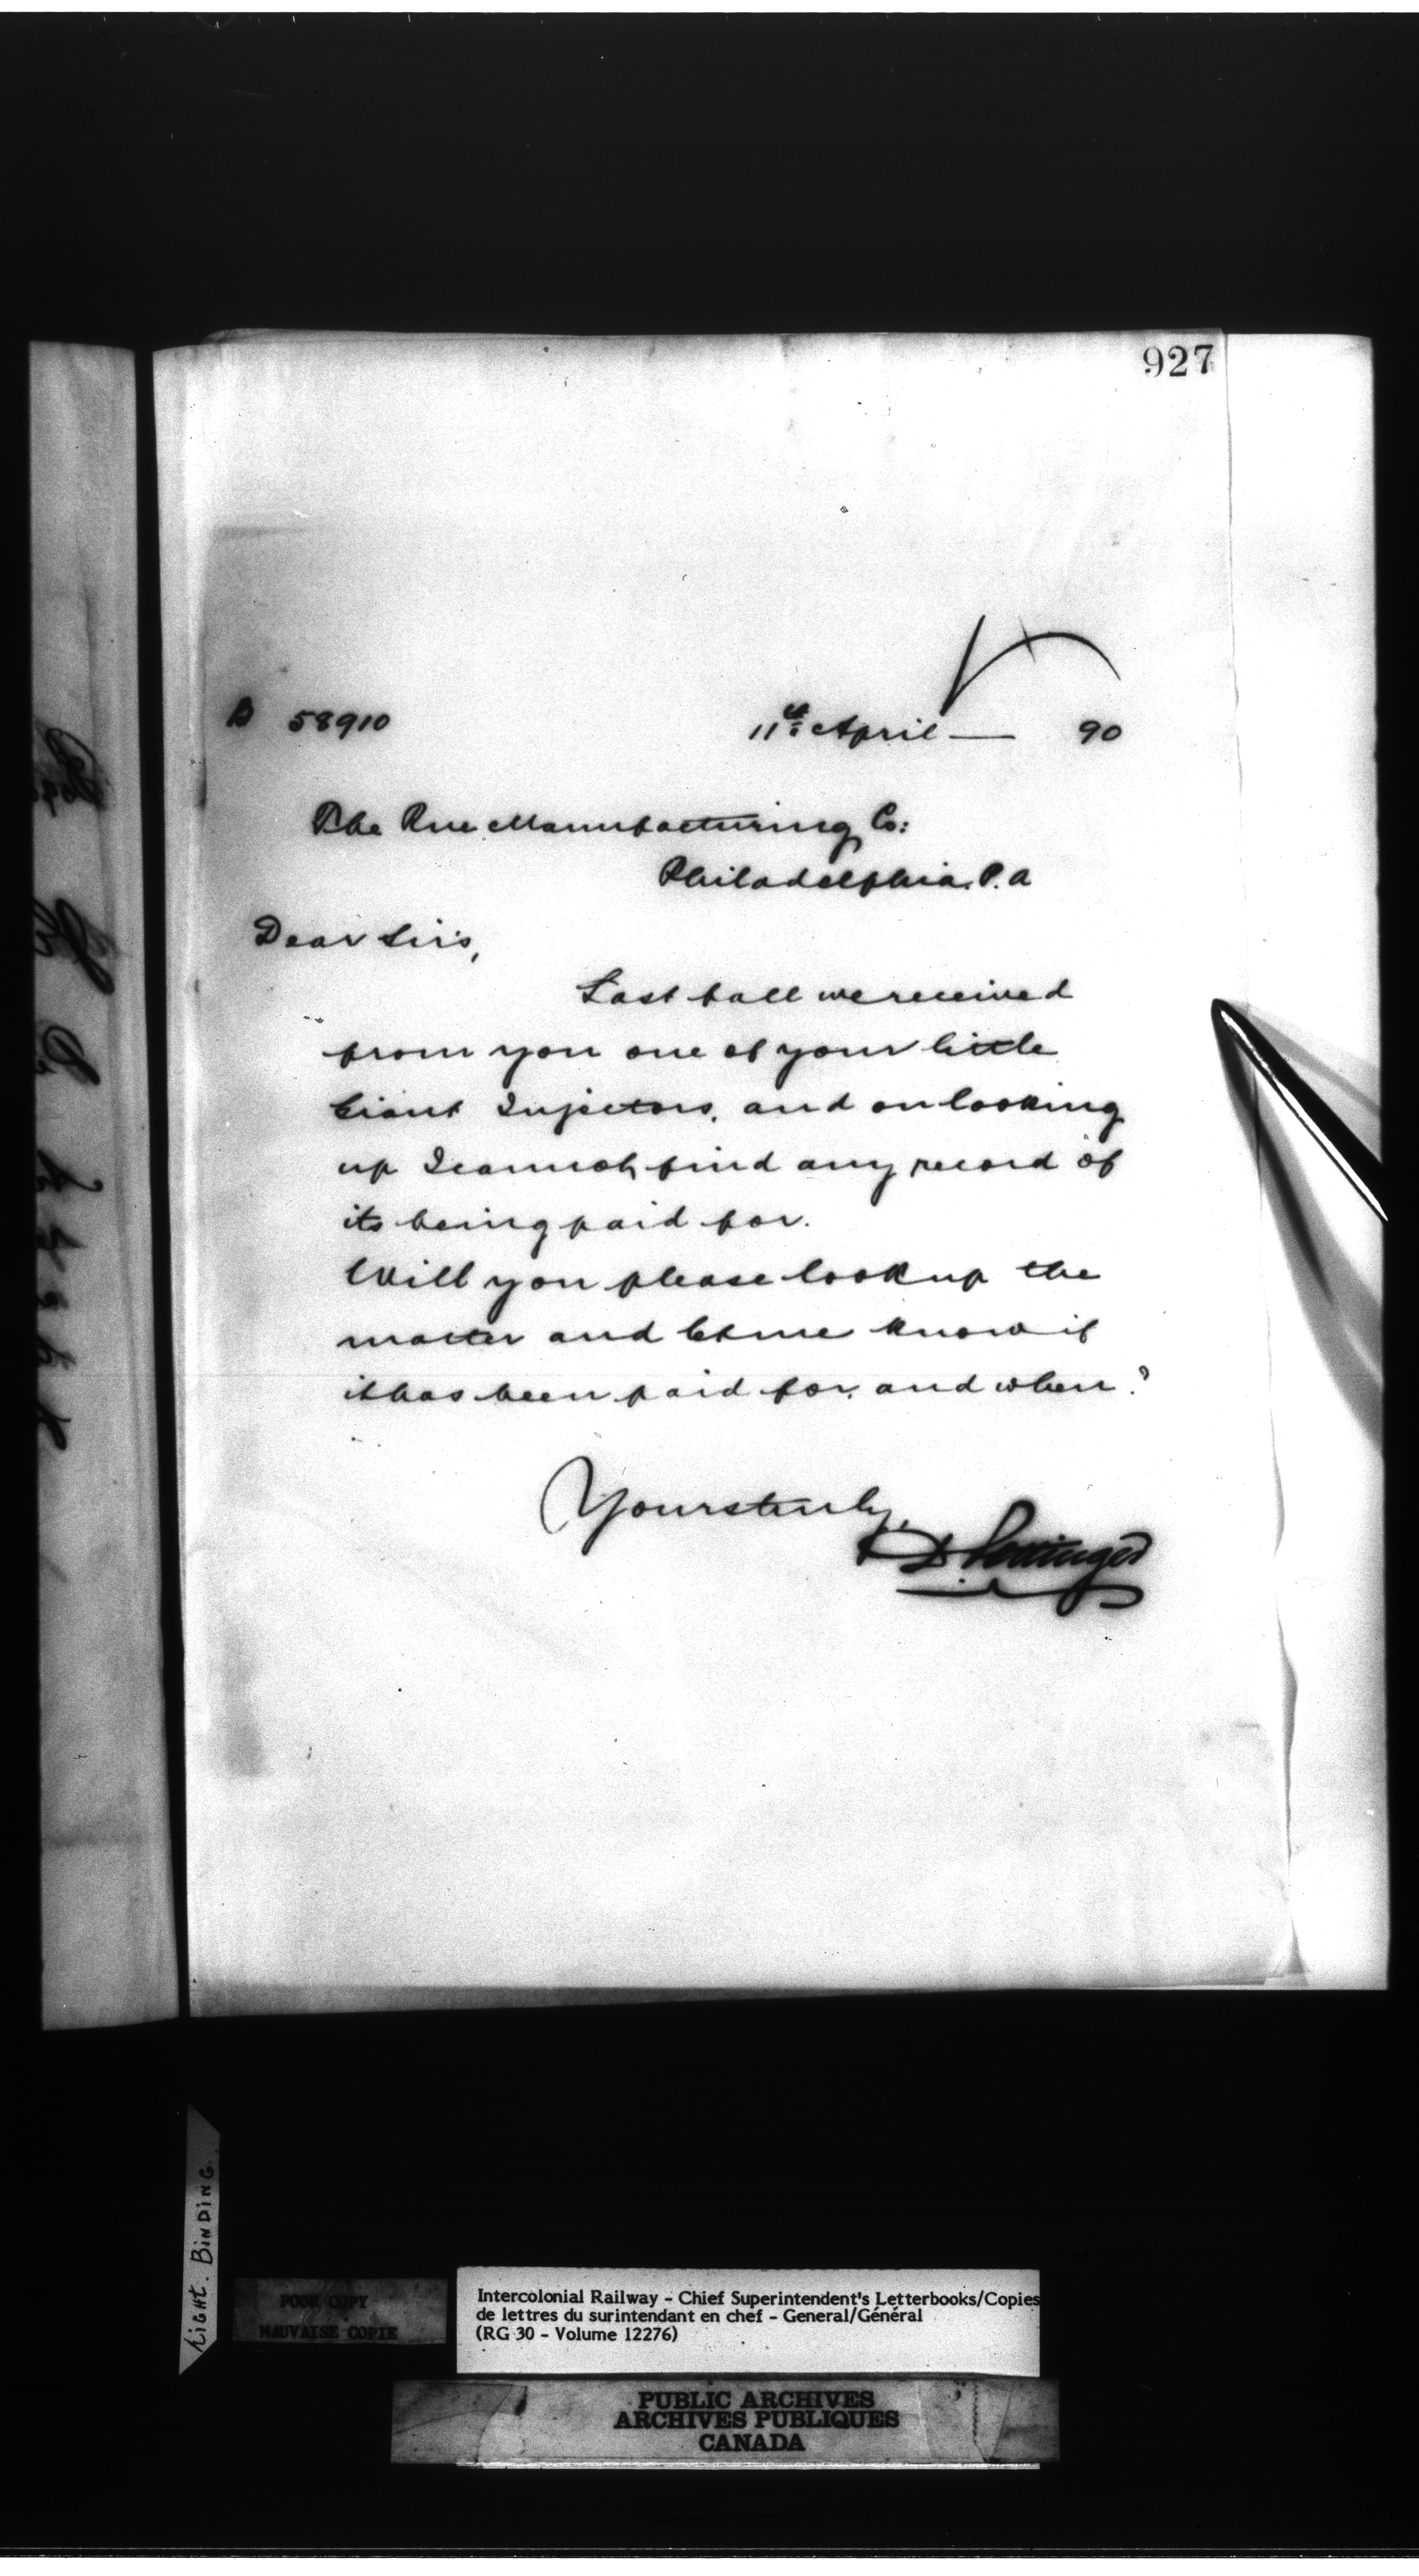 927
B 58910 11th April — 90
The Rue Manufacturing Co:
Philadelphia. P.a
Dear Sirs,
Last fall we received
from you one of your little
Giant Injectors, and on looking
up I cannot find any record of
its being paid for.
Will you please look up the
matter and let me know if
it has been paid for, and when?
Yours truly,
D Pottinger
Light. Binding.
POOR COPY
MAUVAISE COPIE
Intercolonial Railway - Chief Superintendent's Letterbooks/Copies
de lettres du surintendant en chef - General/Général
(RG 30 - Volume 12276)
PUBLIC ARCHIVES
ARCHIVES PUBLIQUES
CANADA